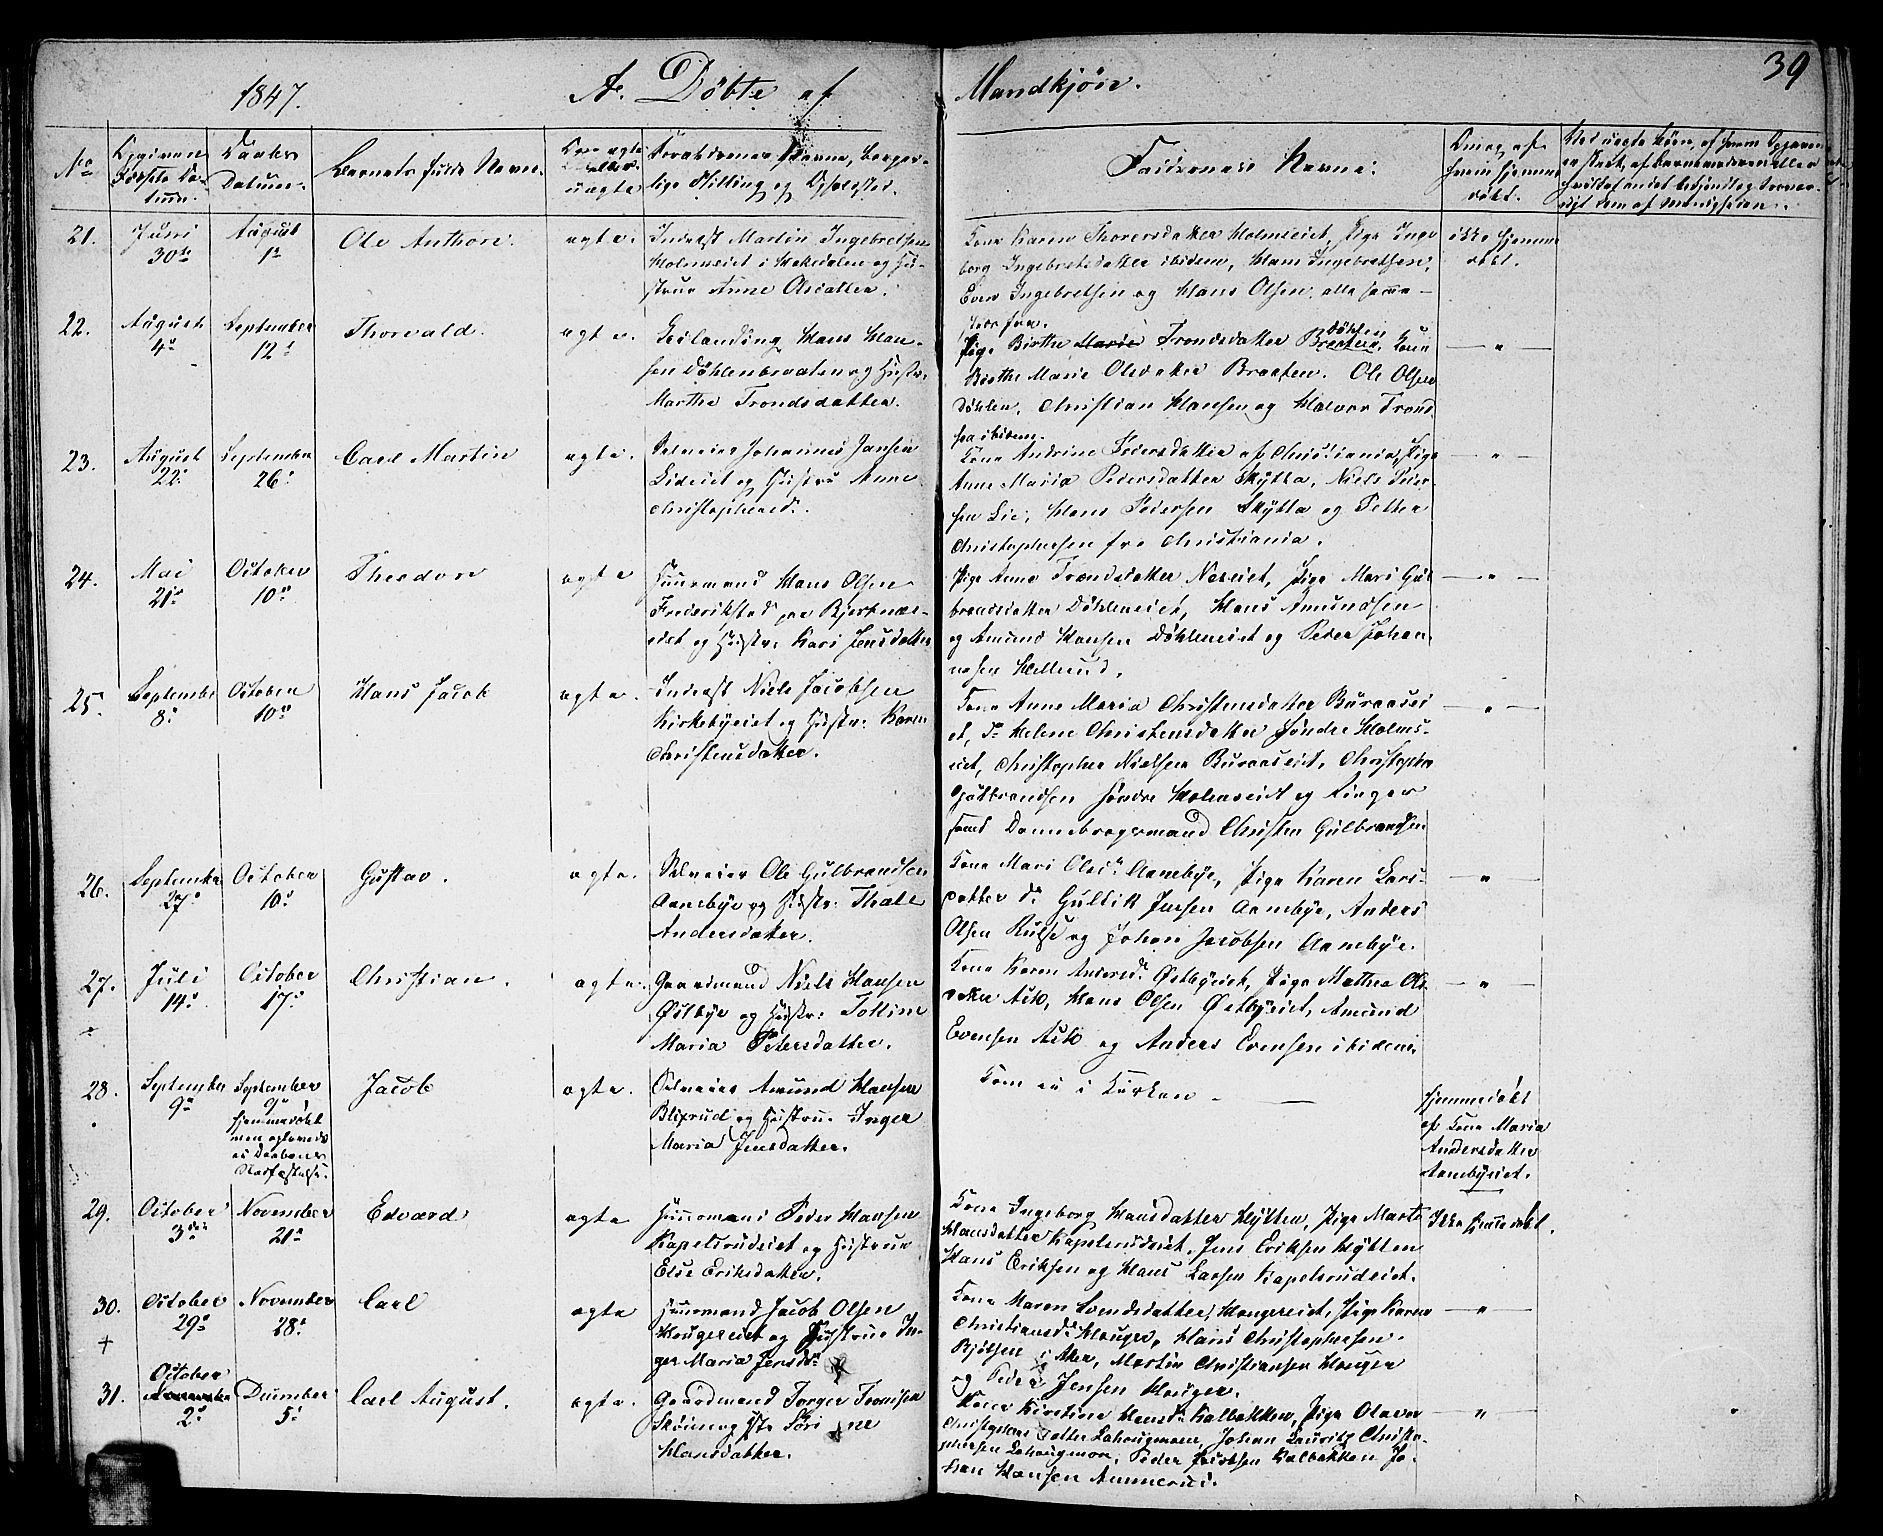 39
1847.
A. Döbte af Mandkjön.
No
Opgiven Födsels Datum.
Daabs Datum.
Barnets fulde Navn.
Om ægte eller uægte
Forældrenes Navne, borgerlige Stilling og Opholdsted.
Faddernes Navne:
Om og af hvem hjemmedöbt.
21.
Juni 30te
August 1ste
Ole Anthore.
ægte.
Inderst Martin Ingebretsen
Holmseiet i Hakedalen og Hu-
strue Anne Olsdatter.
Kone Karen Thoresdatter Holmseiet, Pige Inge
borg Ingebretsdatter ibidem, Hans Ingebretsen,
Even Ingebretsen og Hans Olsen, alle samme-
steds fra.
ikke hjemme
döbt.
22.
August 4de
September 12te
Thorvald.
ægte.
Hans Han-
sen Döhlenbraaten og Hustr:
Marthe Trondsdatter.
Pige Birthe Trondsdatter Döhlen, Kone
Birthe Marie Olsdatter Braaten. Ole Olsen
Döhlen, Christian Hansen og Halvor Trond-
sen ibidem.
— " —
23.
August 22
September 26
Carl Martin
ægte.
Selveier Johannes Jansen
Lieeiet og Hustru Anne
Christophersd:
Kone Andrine Pedersdatter af Christiania, Pige
Anne Maria Pedersdatter Skytta, Niels Peder-
sen Lie, Hans Pedersen Skytta og Petter
Christophersen fra Christiania.
— " —
24.
Mai 21de
October 10de
Theodor
ægte
Huusmand Hans Olsen
Frederikstad paa Bjerknæs-
eiet og Hustr: Kari Jensdatter
Pige Anne Trondsdatter Næseiet, Pige Mari Gul
brandsdatter Döhleneiet, Hans Amundsen
og Amund Hansen Döhleneiet og Peder Johan-
nesen Hellerud.
— " —
25.
September 8de
October 10de
Hans Jacob
ægte.
Inderst Niels Jacobsen
Kirkebyeiet og Hustr: Karen
Christensdatter.
Kone Anne Maria Christensdatter Buraasei
et, Do Helene Christensdatter Söndre Holms-
eiet, Christopher Nielsen Buraaseiet, Christopher
Gulbrandsen Söndre Holmseiet og
Dannebrogsmand Christen Gulbrandsen
— " —
26.
September 27
October 10
Gustav.
ægte.
Selveier Ole Gulbrandsen
Aanebye og Hustr: Thale
Andersdatter.
Kone Mari Olsdr Aanebye, Pige Karen Lars-
datter do Guldik Jensen Aanebye, Anders
Olsen og Johan Jacobsen Aanebye.
— " —
27.
Juli 14de
October 17de
Christian.
ægte.
Gaardmand Niels Hansen
Östbye og Hustr: Tolline
Maria Pedersdatter.
Kone Karen Andersdr Östbyeiet, Pige Mathea Ols-
datter Ask, Hans Olsen Östbyeiet, Amund
Evensen Ask og Anders Evensen ibidem.
— " —
28.
September 9de
September 9de
hjemmedöbt
Jacob
ægte.
Selveier Amund Hansen
Blixrud og Hustrue Inger
Maria Jensdatter.
Kom ei i Kirken.
hjemmedöbt
af Kone Maria
Andersdatter
Aanebyeiet.
29.
October 3die
November 21de
Edvard
ægte
Huusmand Peder Hansen
Kapelsrudeiet og Hustrue
Else Eriksdatter.
Kone Ingeborg Hansdatter Hytten, Pige Marte
Hansdatter Kapelsrudeiet, Jens Eriksen Hytten
Hans Eriksen og Hans Larsen Kapelsrudeiet.
Ikke hjemmedöbt.
30.
+
October 29de
November 28de
Carl
ægte
Huusmand Jacob Olsen
Haugereiet og Hustrue In-
ger Maria Jensdr
Kone Maren Svendsdatter, Haugereiet, Pige Karen
Christiansdr Hauger, Hans Christophersen
Bjölsen i Aker, Martin Christiansen Hauger
og Peder Jensen Hauger.
— " —
31.
October 2de
December 5te
Carl August.
ægte.
Gaardmand Torger Tronsen
Sköien og Hstr Sörine
Hansdatter.
Kone Kirstine Hansdr Kalbakken, Pige Olava
Christophersdatter Lahaugmoen, Johan Lauritz Christo-
phersen Lahaugmoen, Peder Jacobsen Kalbakken Jo-
han Hansen Ammerud.
— " —